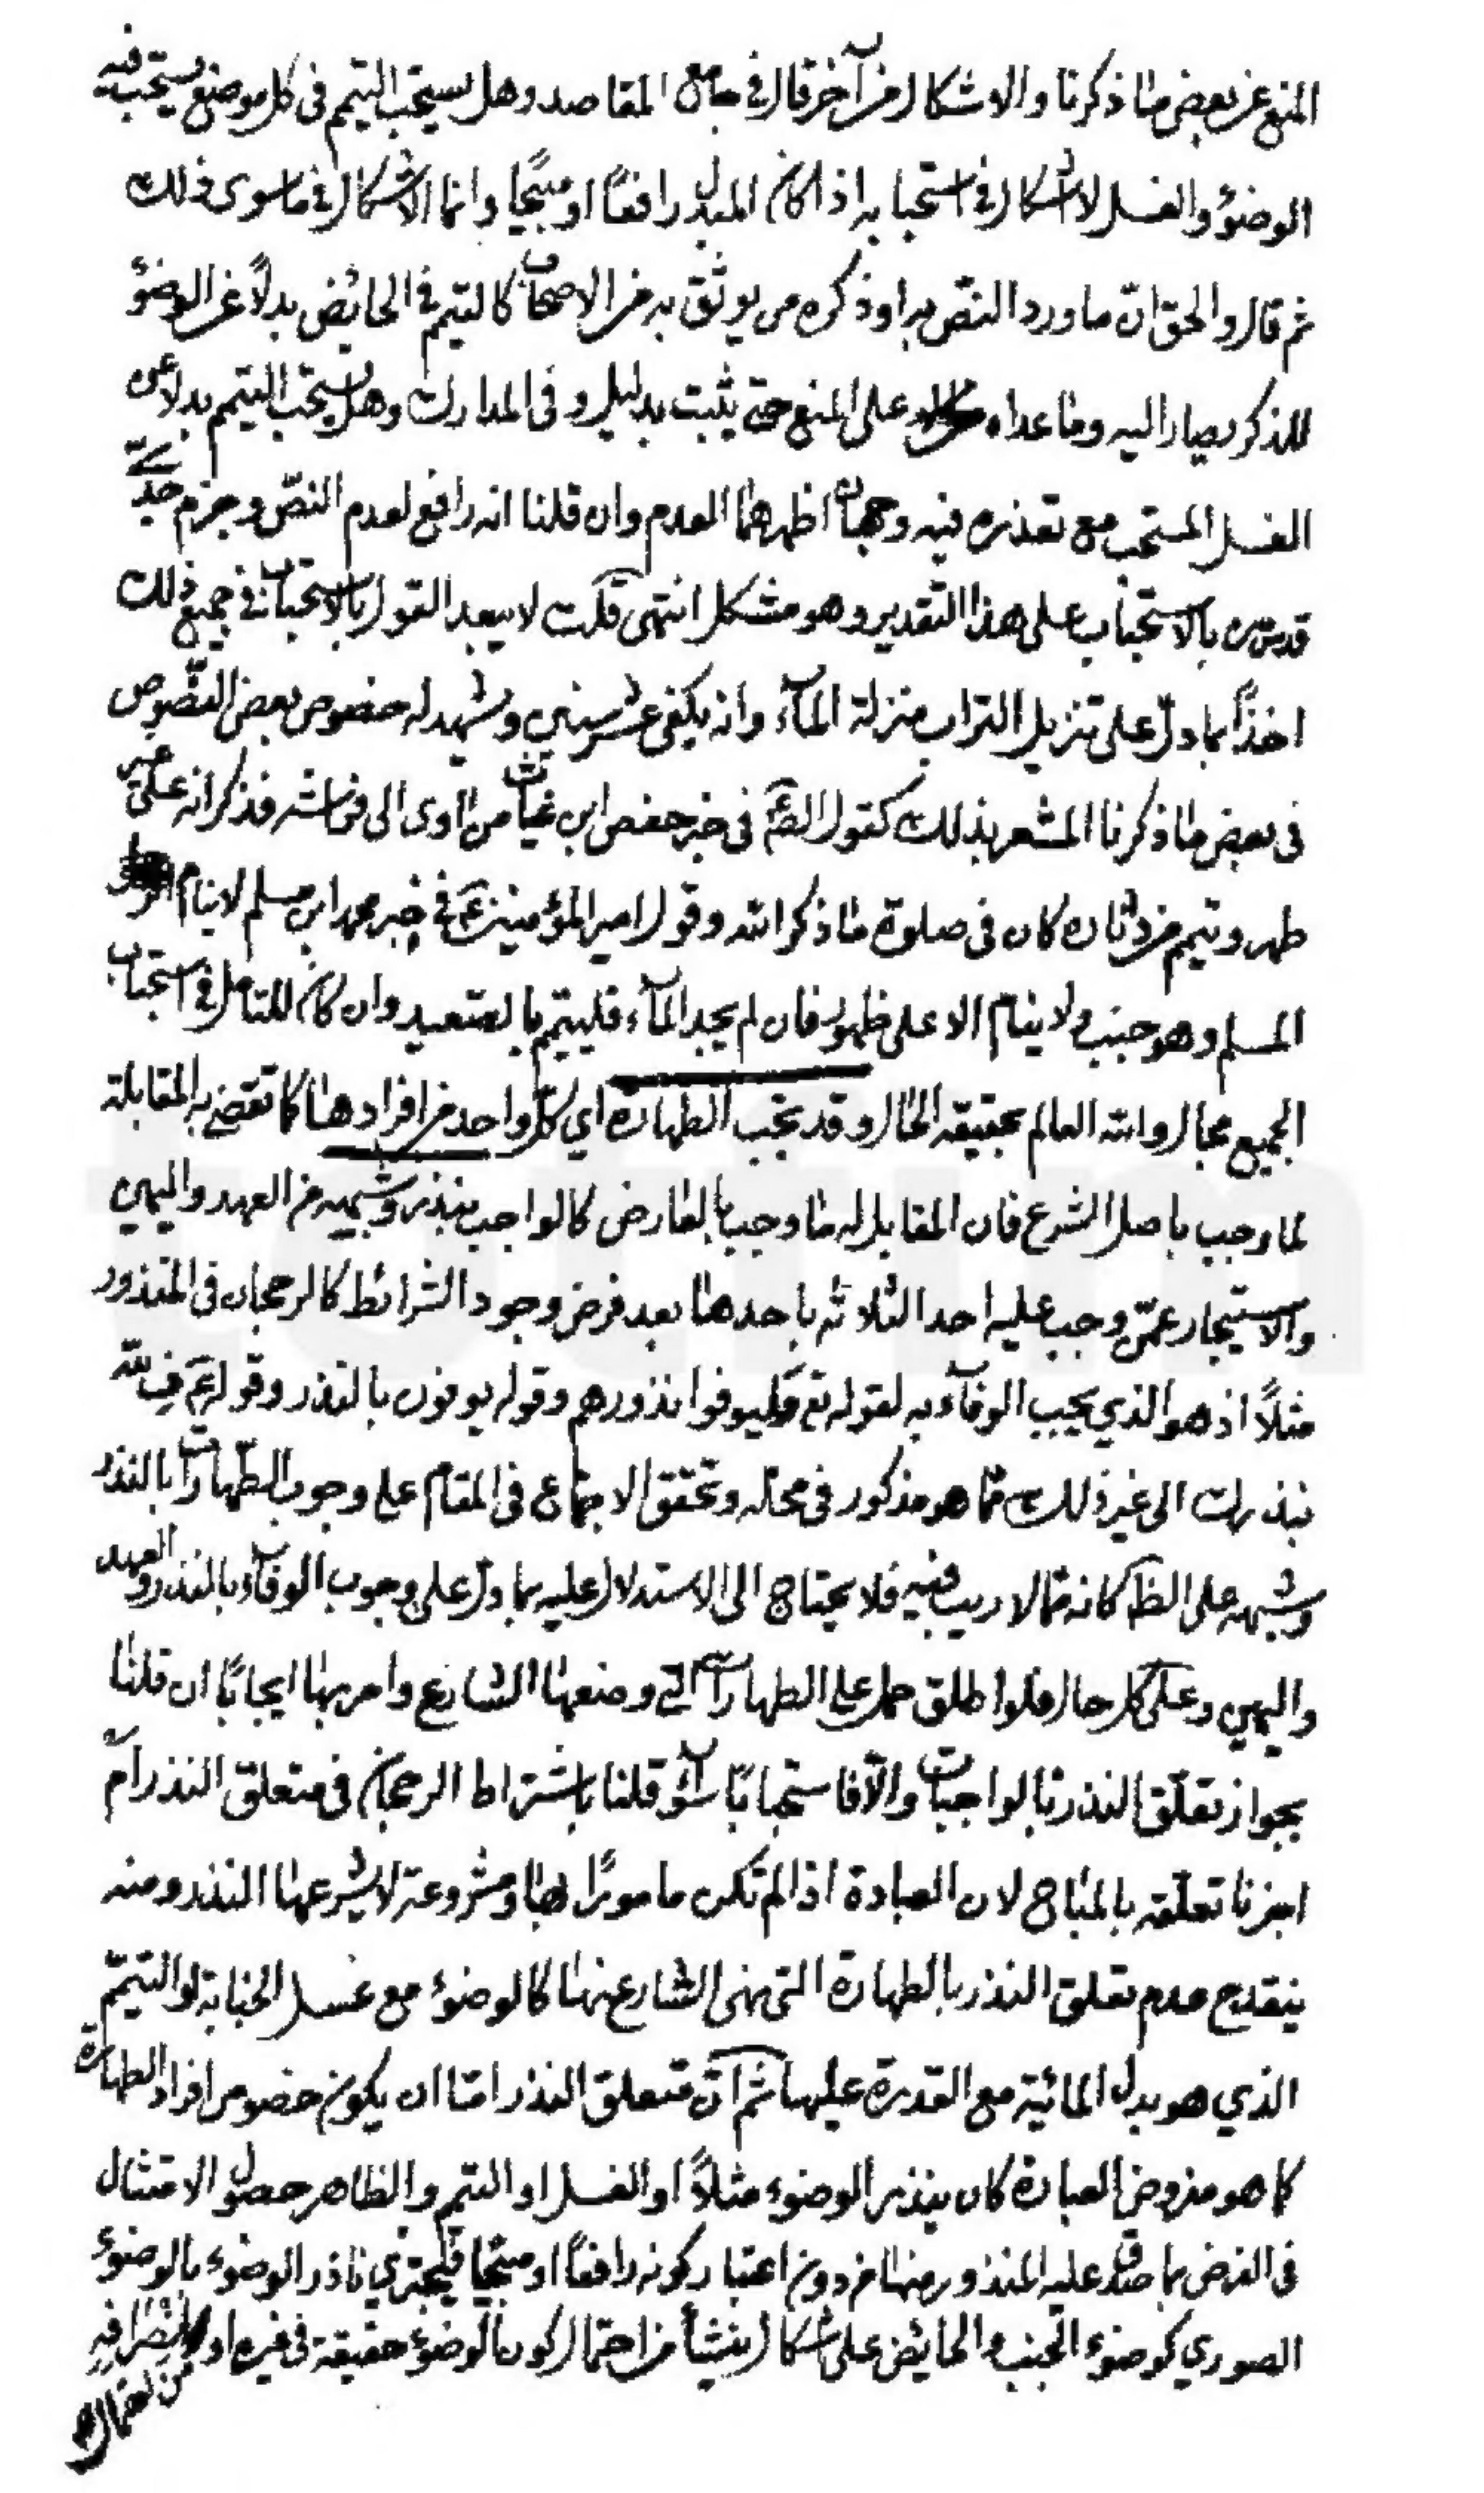 المنع عن بعض ما ذكرنا والاشكال من آخر قال في جامع المقاصد وهل يستحب التيمم في كل موضع يستحب فيه
الوضوء والغسل لا اشكال في استحبابه اذا كان المبدل رافعًا او مبيحًا وانما الاشكال في ما سوى ذلك
ثم قال والحق انّ ما ورد النصّ به او ذكره من يوثق به من الاصحاب كالتيمم في الحائض بدلاً عن الوضوء
للذكر يصار اليه وما عداه على المنع حتى يثبت بدليل وفى المدارك وهل يستحب التيمم بدلا عن
الغسل المستحب مع تعذره فيه وجهان اظهرهما العدم وان قلنا انه رافع لعدم النصّ وجزم جدّي
قدس سره بالاستحباب على هذا التقدير وهو مشكل انتهى قلت لا يبعد القول بالاستحباب في جميع ذلك
اخذًا بما دلّ على تنزيل التراب منزلة المآء وانه يكفى عشر سنين ويشهد له خصوص بعض النصّوص
فى بعض ما ذكرنا المشعر بذلك كقول الصم في خبر حفص ابن غياث من اوى الى فراشه فذكر انه على غير
طهر وتيمم من دثاره كان فى صلوة ما ذكر الله وقول امير المؤمنين عم في خبر محمد ابن مسلم لا ينام
المسلم وهو جنب ولا ينام الا على طهور فان لم يجد المآء فليتيمم بالصعيد وان كان للتامل في استحباب
الجميع مجال والله العالم بحقيقة الحال وقد تجب الطهارة اي كلّ واحد من افرادها كما تقتضيه المقابلة
لما وجب باصل الشرع فان المقابل له ما وجب بالعارض كالواجب بنذر وشبهه من العهد واليمين
والاستيجار عمّن وجب عليه احد الثلاثة باحدها بعد فرض وجود الشرائط كالرجحان فى المنذور
مثلاً اذ هو الذي يجب الوفآء به لقوله تع وليوفوا نذورهم وقوله يوفون بالنذر وقوله عم فِ لله
بنذرك الى غير ذلك ممّا هو مذكور فى محله وتحقق الاجماع فى المقام على وجوب الطّهارات بالنذر
وشبهه على الظ كانه ممّا لا ريب فيه فلا يحتاج الى الاستدلال عليه بما دلّ على وجوب الوفآء بالنذر والعهد
واليمين وعلى كل حال فلو اطلق حمل على الطهارات التي وضعها الشارع وامر بها ايجابًا ان قلنا
بجواز تعلّق النذر بالواجبات والّا فاستحبابًا سوآء قلنا باشتراط الرجحان فى متعلق النذر ام
اجزنا تعلّقه بالمباح لان العبادة اذا لم تكن مامورًا بها ومشروعة لا يشرعها النذر ومنه
ينقدح عدم تعلق النذر بالطهارة التى نهى الشارع عنها كالوضوء مع غسل الجنابة او التيمّم
الذي هو بدل المائية مع القدرة عليها ثم انّ متعلق النذر امّا ان يكون خصوص افراد الطهارة
كما هو مفروض العبارة كان ينذر الوضوء مثلاً او الغسل او التيمم والظاهر حصول الامتثال
فى الفرض بما صدق عليه المنذور منها من دون اعتبار كونه رافعًا او مبيحًا فيجتزي ناذر الوضوء بالوضوء
الصوري كوضوء الجنب والحائض على اشكال ينشأ من احتمال كون الوضوء حقيقة فى غيره او